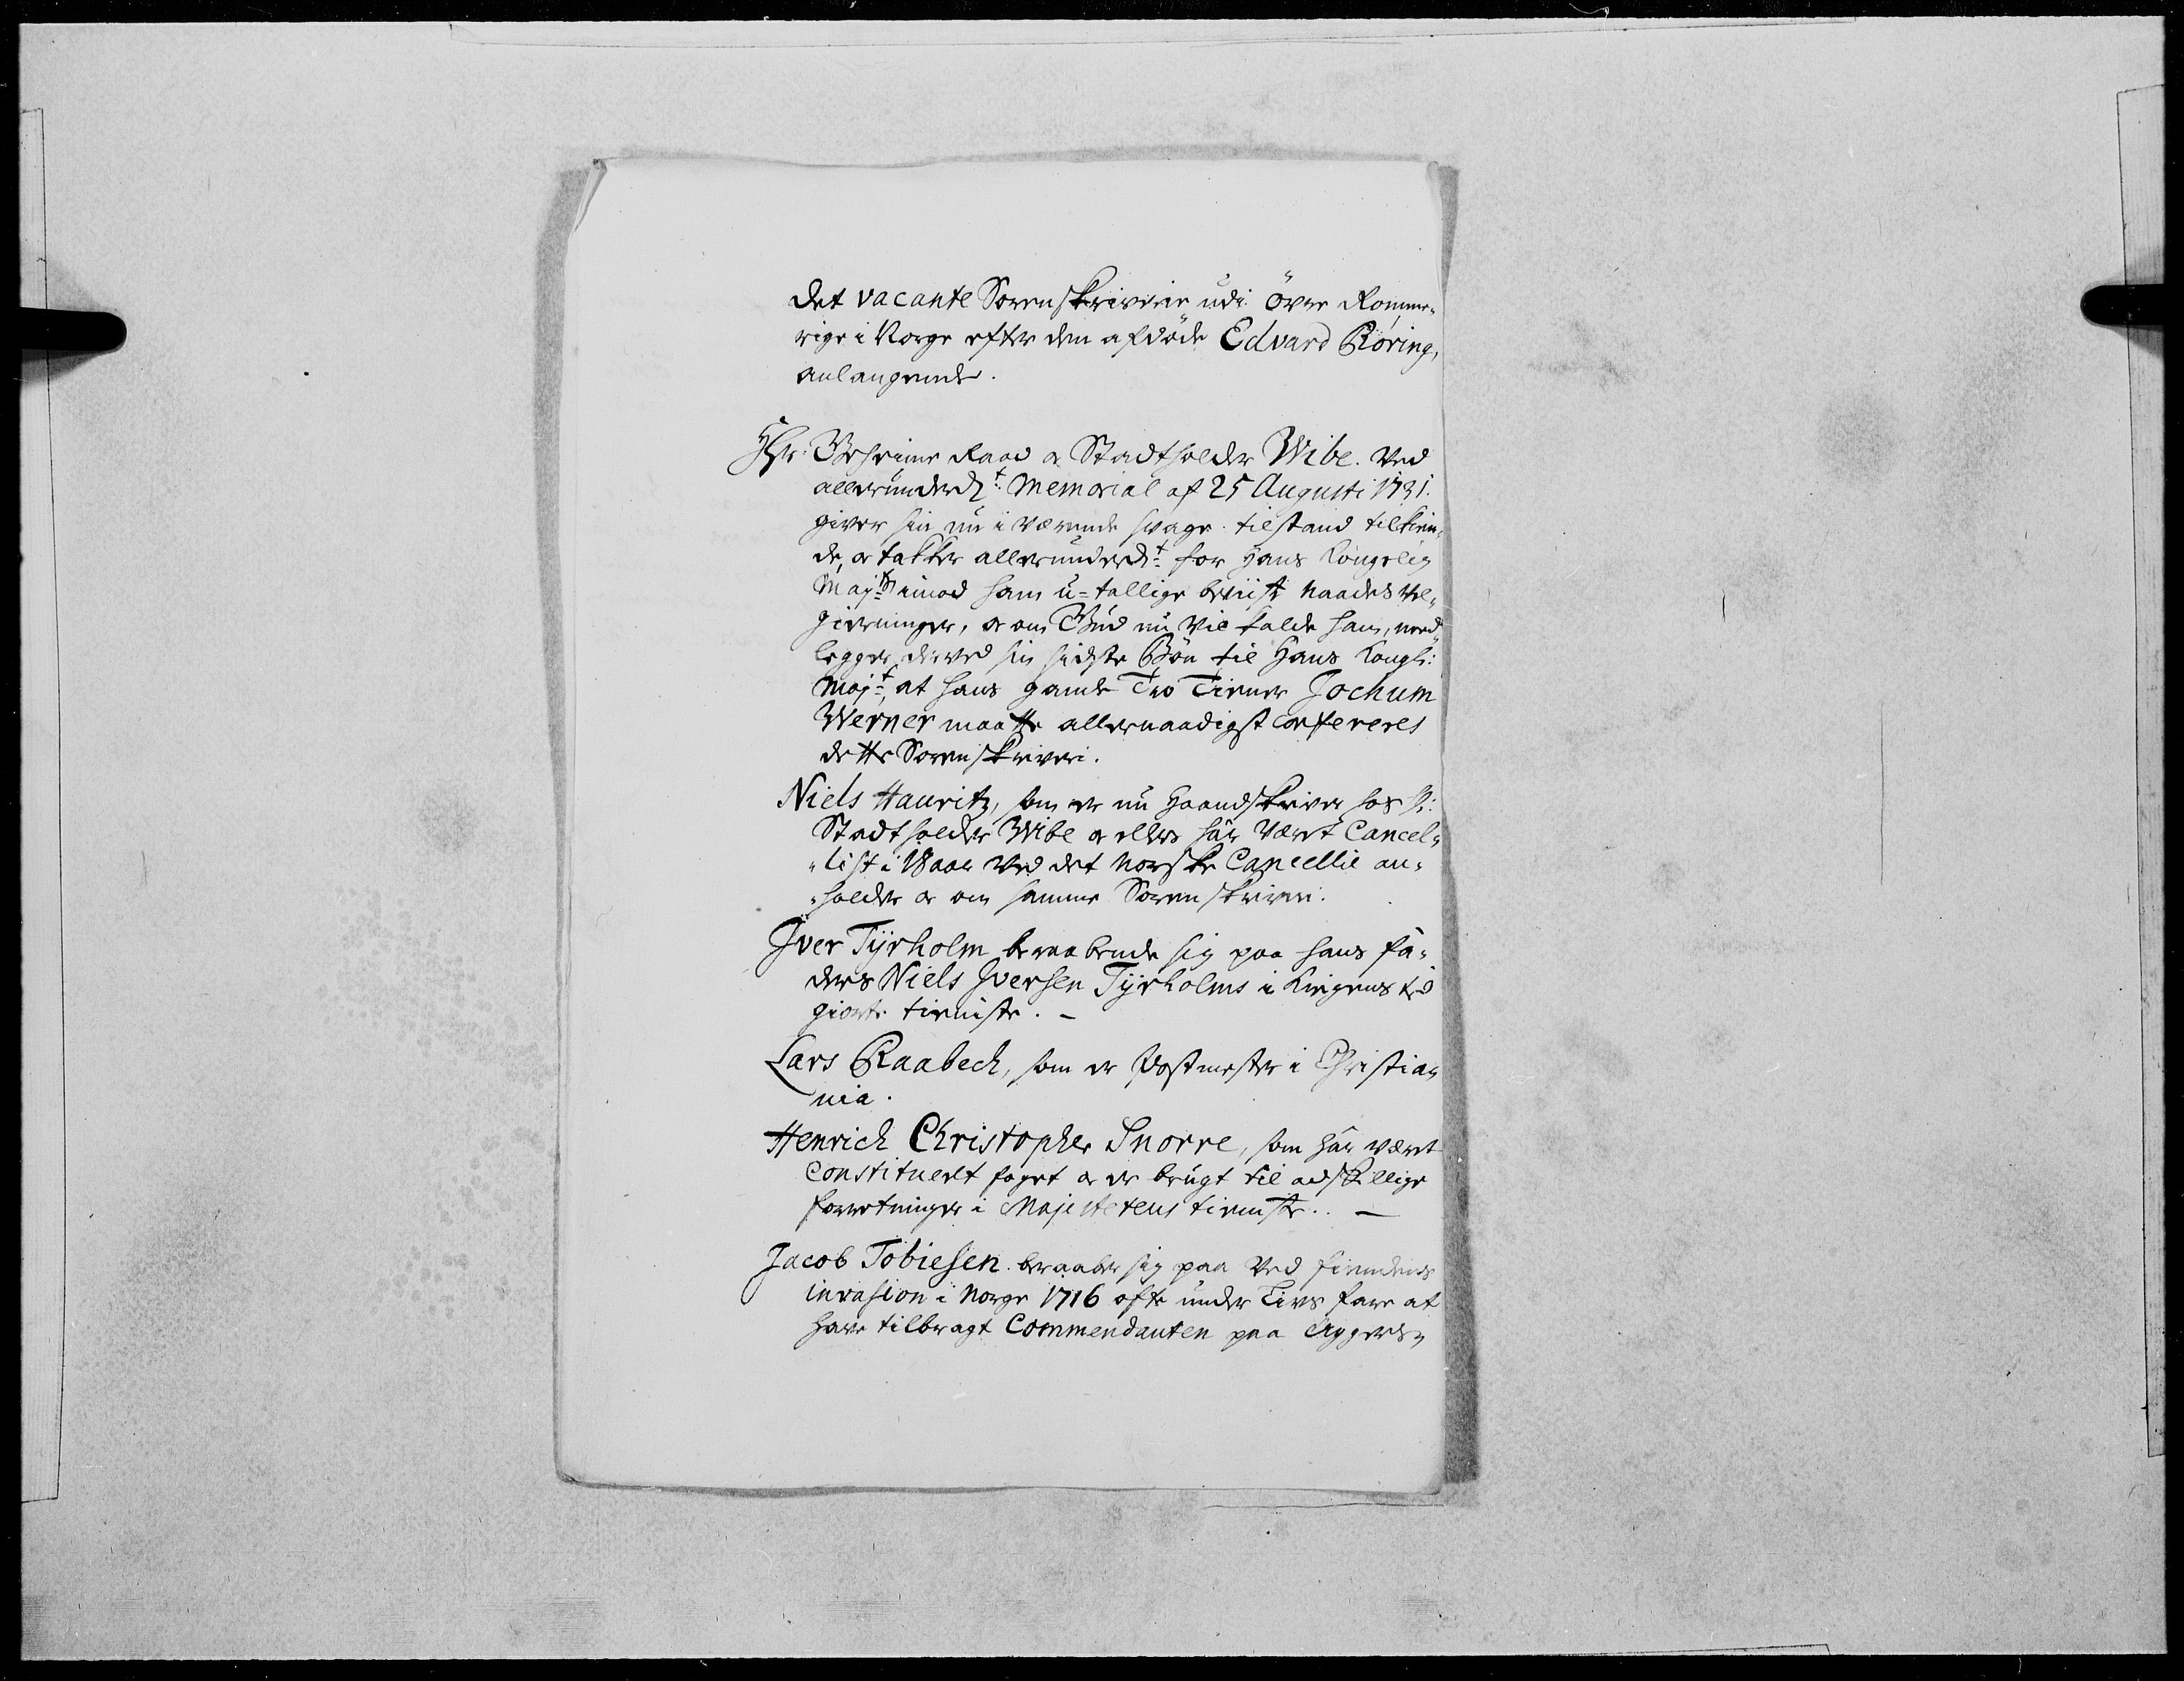 det vacante Sorenskriverie udi Över Romme„
rige i Norge efter den afdöde Edvard Röring,
anlangende.
Hr: Geheime Raad og Stadtholder Wibe. Ved
allerunderd:t Memorial af 25 Augusti 1731.
giver sin nu i værende svage tilstand tilkien„
de, og takker allerunderd:t for Hans Kongelig
Maj:ts imod ham u=tallige beviste Naades vel„
gierninger, og om Gud nu vil kalde ham, ned„
legger derved sin sidste Bön til Hans Kongl:
Maj:t, at hans gamle Tro Tiener Jochum
Werner maatte allernaadigst confereres
dette Sorenskriveri.
Niels Hauritz, som er nu Haandskriver hos H:
Stadtholder Wibe og ellers har været Cancel„
„list i 18 aar ved det Norske Cancellie an„
„holder og om samme Sorenskriveri.
Iver Tyrholm beraabende sig paa hans fa„
ders Niels Iversen Tyrholms i Krigens tid
giorte tieniste. –
Lars Raabech, som er Postmester i Christia„
nia.
Henrich Christopher Snorre, som har været
Constituert foget og er brugt til adskillige
forretninger i Majestetens tieniste. –
Jacob Tobiesen beraaber sig paa ved fiendens
invasion i Norge 1716 ofte under Livs fare at
have tilbragt Commendanten paa Aggers„